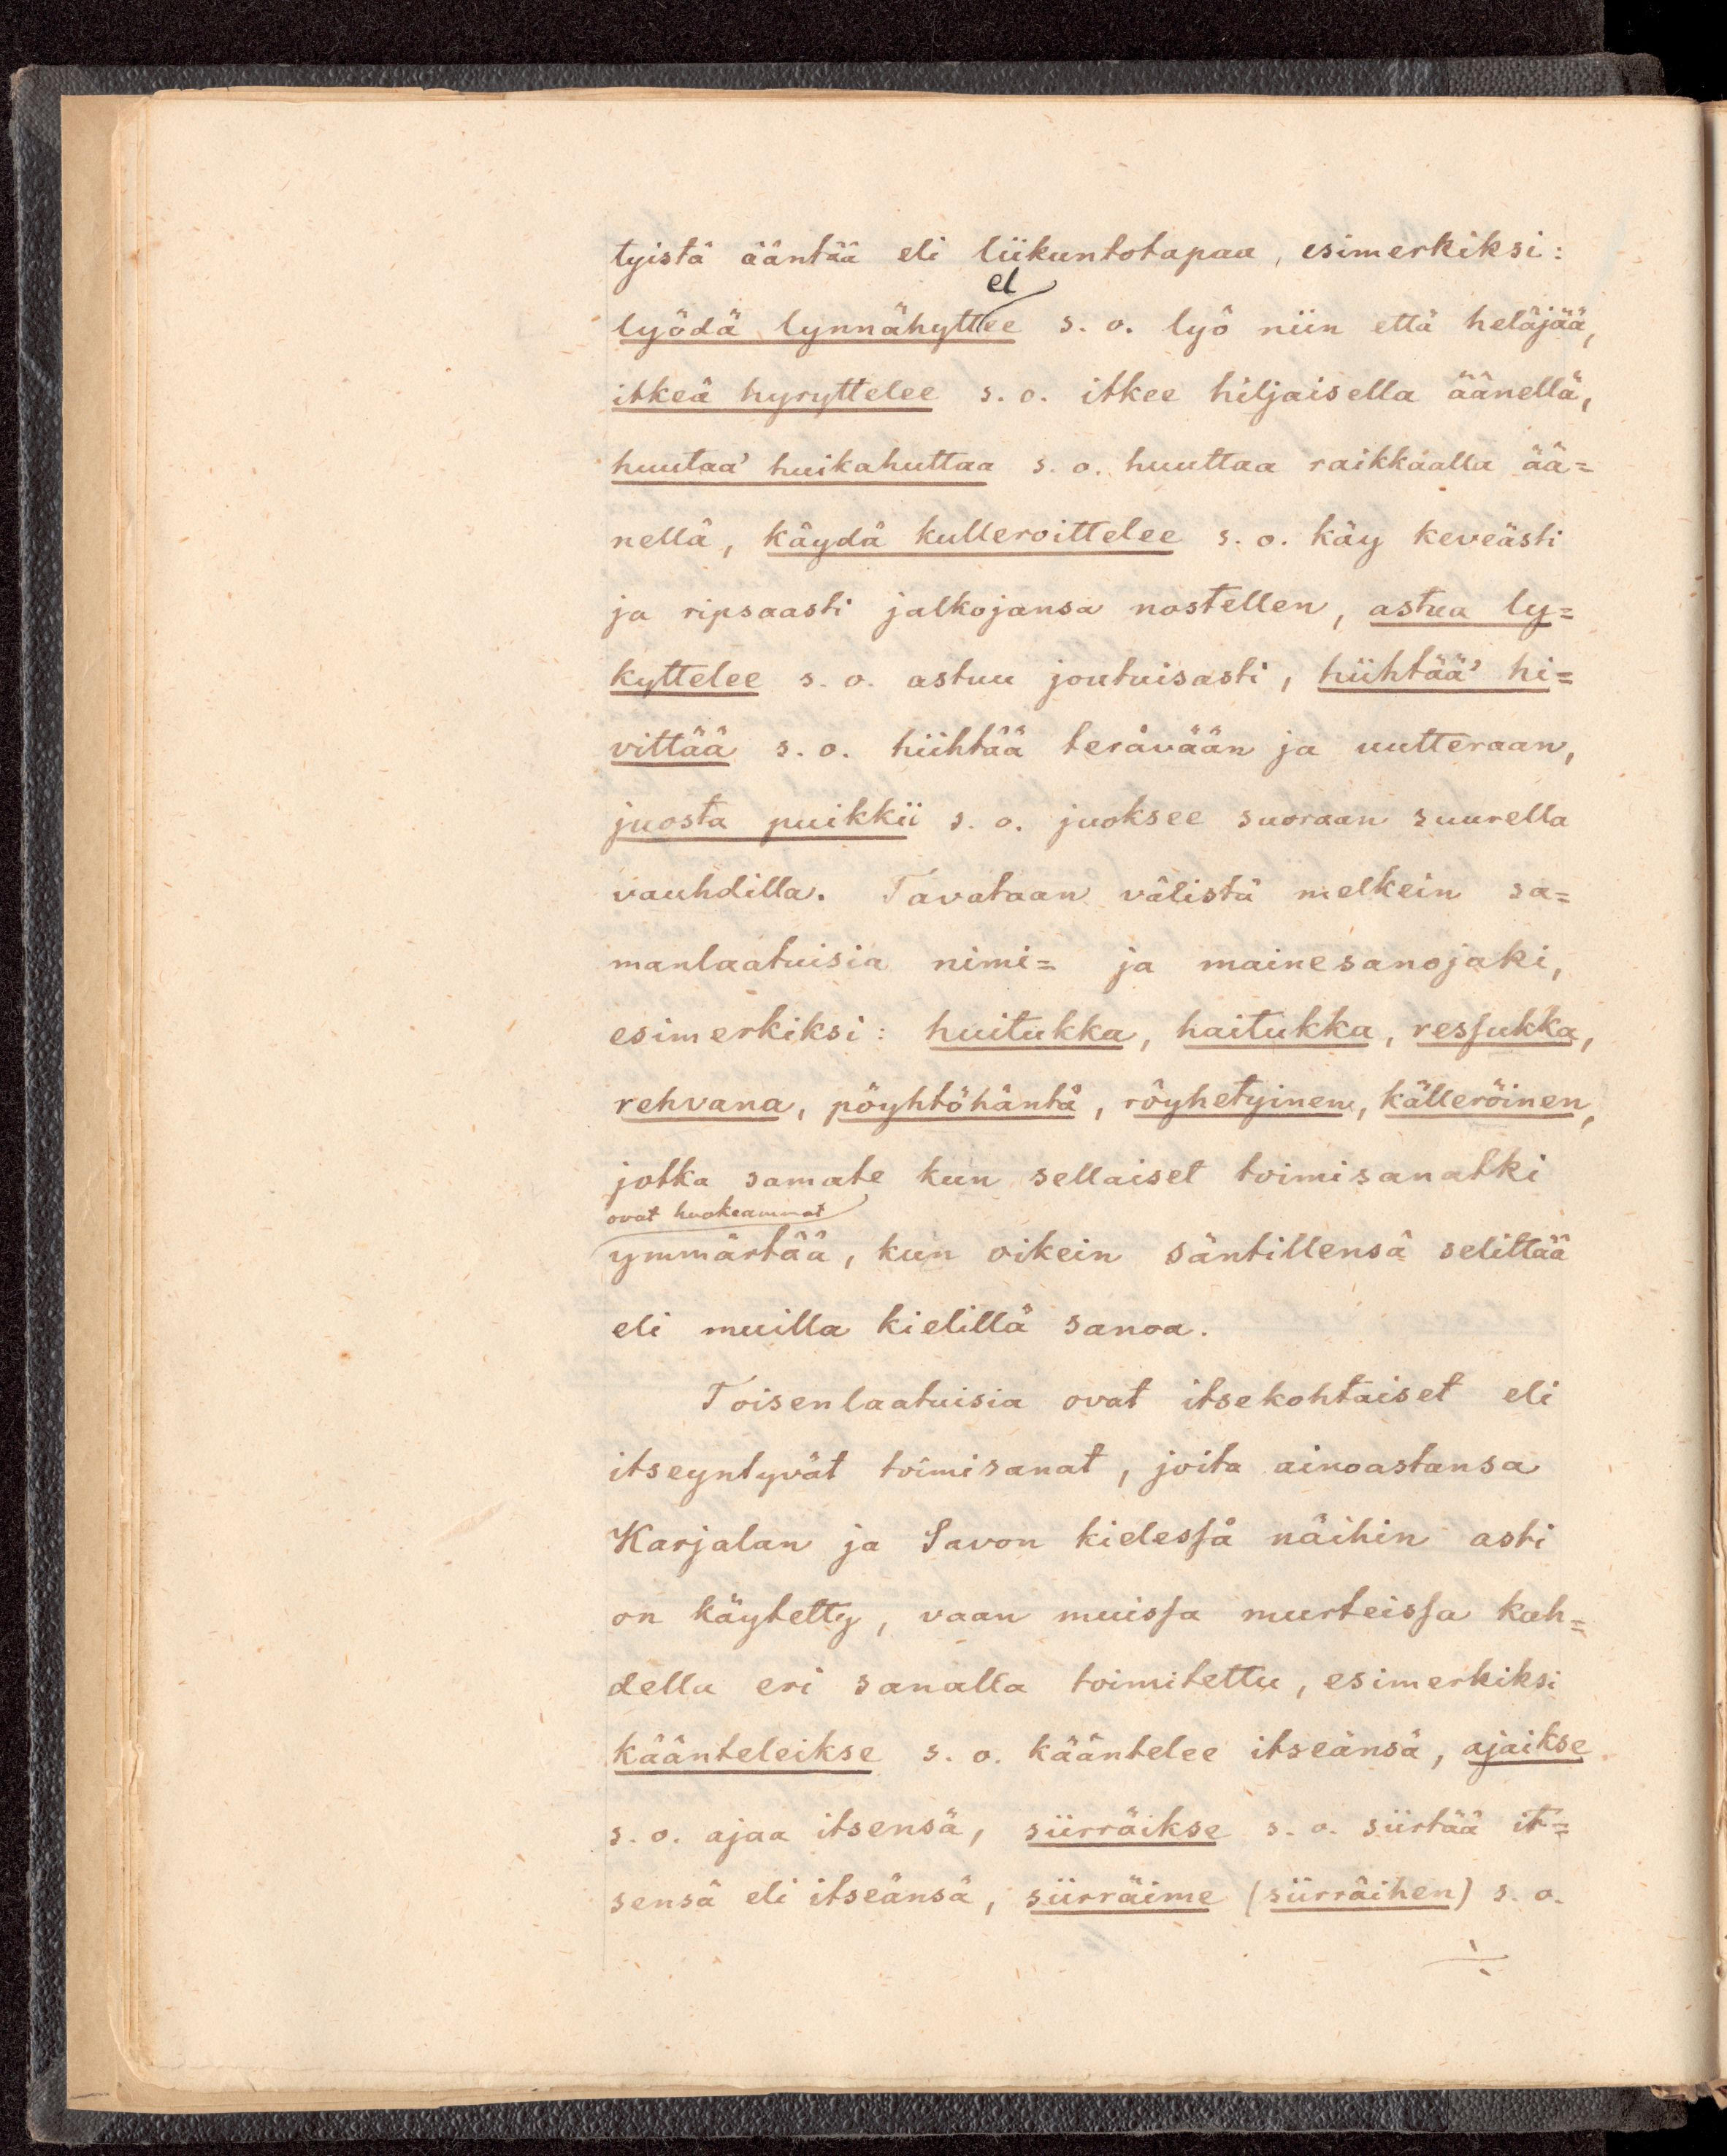 tyistä ääntää eli liikuntotapaa, esimerkiksi:
el
lyödä lynnähyttee s. o. lyö niin että heläjää,
itkeä hyryttelee s. o. itkee hiljaisella äänellä,
huutaa' huikahuttaa s. o. huuttaa raikkaalla ää=
nellä, käydä kulleroittelee s. o. käy keveästi
ja ripsaasti jalkojansa nostellen, astua ly=
kyttelee s. o. astuu joutuisasti, hiihtää' hi=
vittää s. o. hiihtää terävään ja uutteraan,
juosta puikkii s. o. juoksee suoraan suurella
vauhdilla. Tavataan välistä melkein sa=
manlaatuisia nimi= ja mainesanojaki,
esimerkiksi: huitukka, haitukka, resſukka,
rehvana, pöyhtöhäntä, röyhetyinen, källeröinen,
jotka samate kun sellaiset toimisanatki
ovat huokeammat
ymmärtää, kun oikein säntillensä selittää
eli muilla kielillä sanoa.
Toisenlaatuisia ovat itsekohtaiset eli
itseyntyvät toimisanat, joita ainoastansa
Karjalan ja Savon kielesſä näihin asti
on käytetty, vaan muisſa murteisſa kah=
della eri sanalla toimitettu, esimerkiksi
käänteleikse s. o. kääntelee itseänsä, ajaikse
s. o. ajaa itsensä, siirräikse s. o. siirtää it=
sensä eli itseänsä, siirräime (siirräihen) s. o.